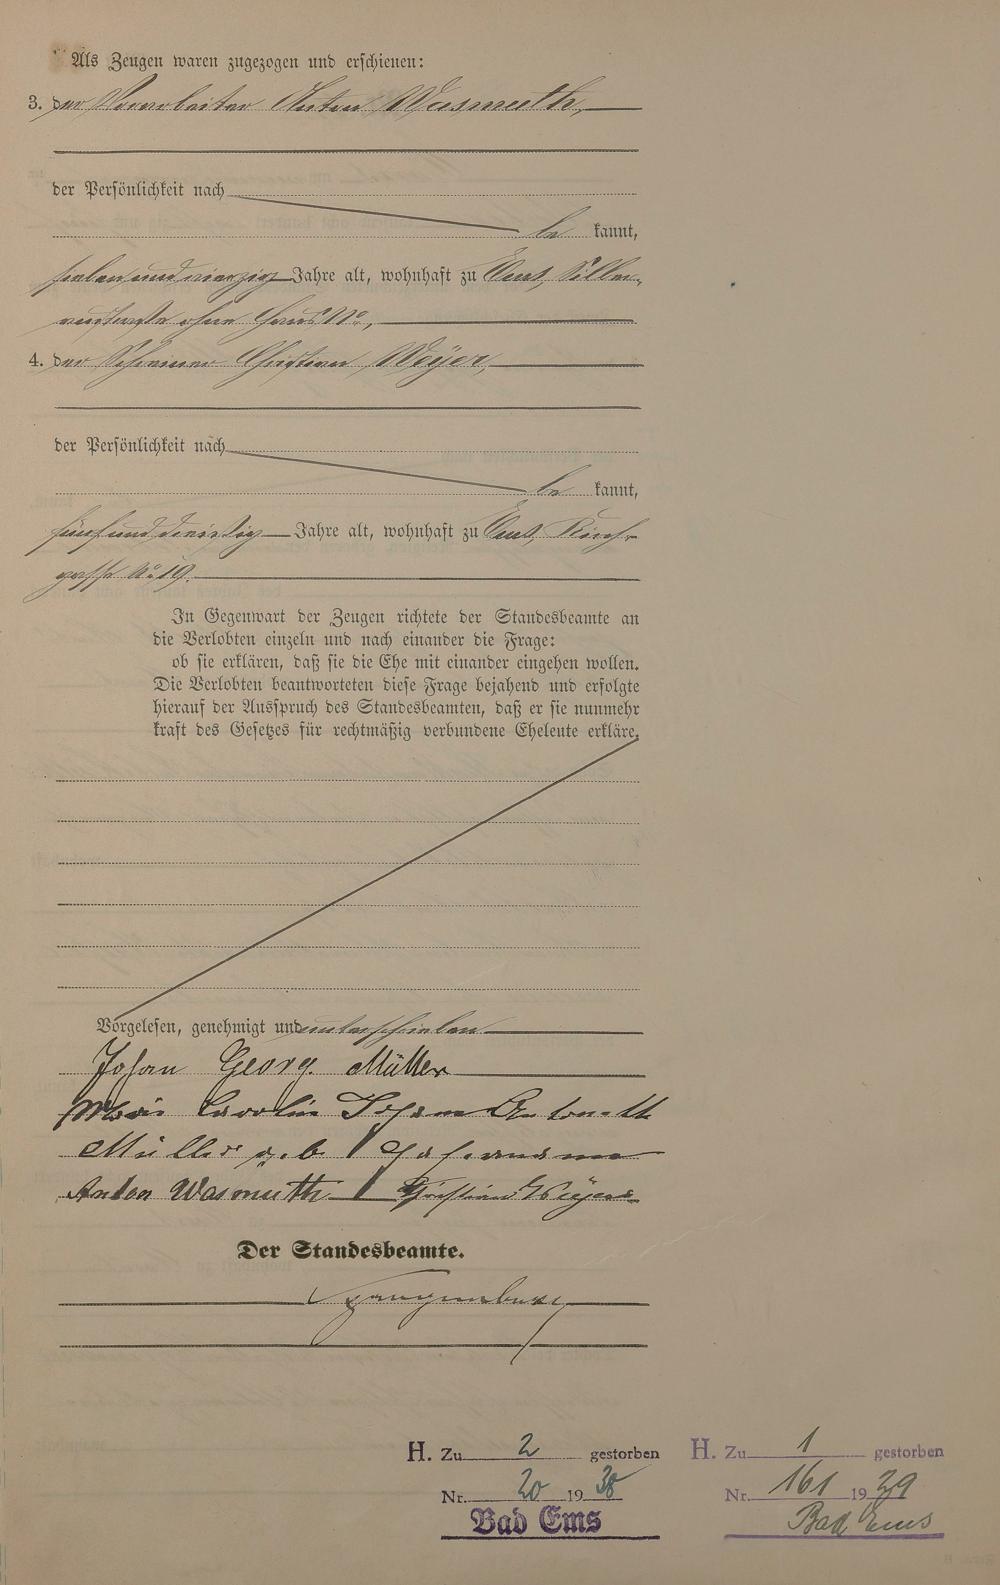 Als Zeugen waren zugezogen und erschienen:
3. der Vorarbeiter Anton Wasmuth,
der Persönlichkeit nach
be kannt,
siebenundvierzig Jahre alt, wohnhaft zu Ems,
ohne Haus No,
4. der Schreiner Christian Weyer,
der Persönlichkeit nach
be kannt,
fünfunddreißig Jahre alt, wohnhaft zu Ems, Kirch-
gasse No 19.
In Gegenwart der Zeugen richtete der Standesbeamte an
die Verlobten einzeln und nach einander die Frage:
ob sie erklären, daß sie die Ehe mit einander eingehen wollen.
Die Verlobten beantworteten diese Frage bejahend und erfolgte
hierauf der Ausspruch des Standesbeamten, daß er sie nunmehr
kraft des Gesetzes für rechtmäßig verbundene Eheleute erkläre.
Vorgelesen, genehmigt und unterschrieben
Johan Georg Müller
Carolin Antonett
Müller geb
Anton Wasmuth Christian Weyer
Der Standesbeamte.
H. Zu 2 gestorben
Nr. 20 1938
Bad Ems
H. Zu 1 gestorben
Nr. 161 1939
Bad Ems